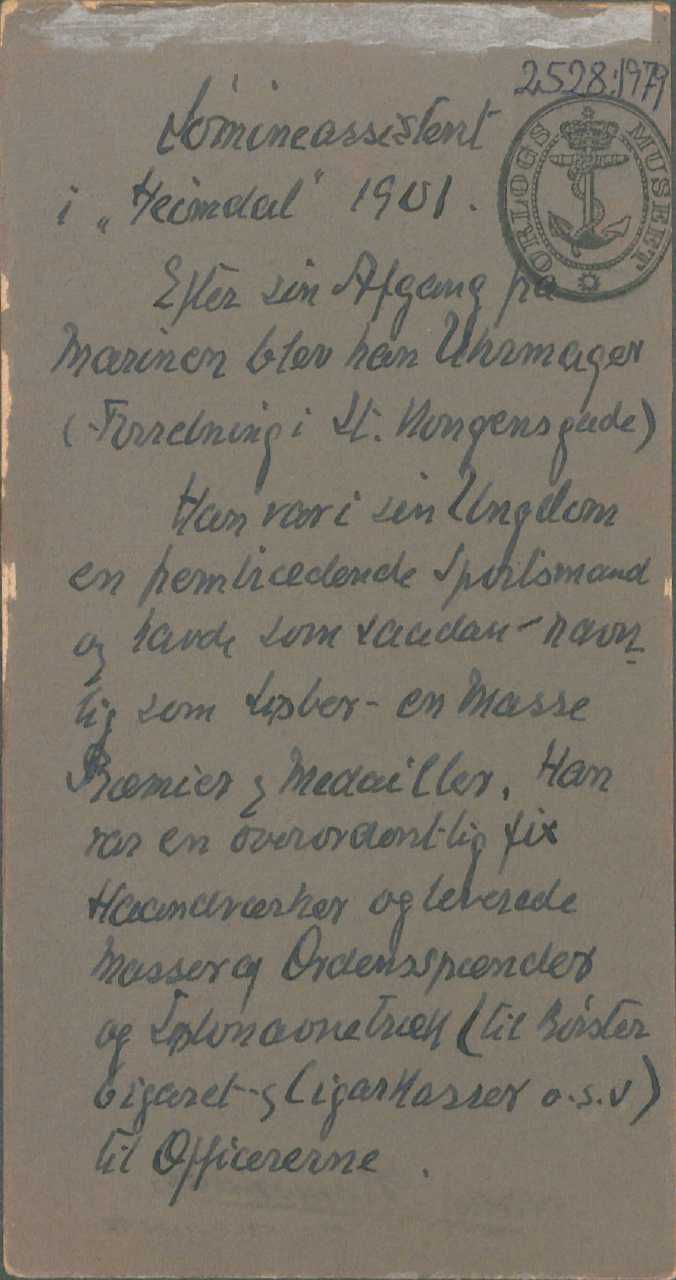 2528:1979
ORLOGS MUSEET
Sømineassistent
i „Heimdal" 1901.
Efter sin Afgang fra
Marinen blev han Uhrmager
(Forretning i St. Kongensgade)
Han var i sin Ungdom
en fremtrædende Sportsmand
og havde som saadan - navn
lig som Løber - en Masse
Præmier og Medailler. Han
var en overordentlig fix
Haandværker og leverede
Masser af Ordensspænder
og Sølvnavnetræk (til Børster
Cigaret- og Cigarkasser o.s.v)
til Officererne.